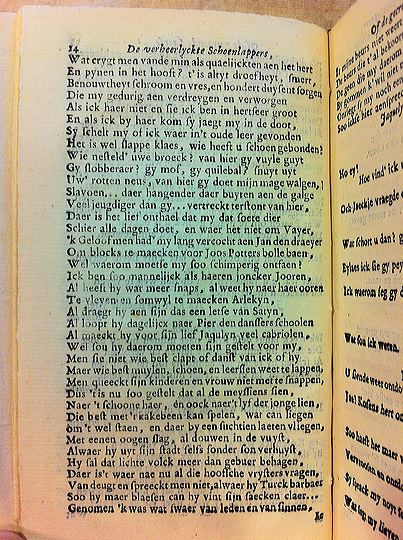 14 De verheerlyckte Schoenlappers,
Wat crygt men vande min als quaelijckten aen het hert
En pynen in het hooft? t'is altyt droefheyt, smert,
Benouwtheyt schroom en vres, en hondert duysent sorgen
Die my gedurig aen verdreygen en verworgen
Als ick haer niet en sie ick ben in hertseer groot
En als ick by haer kom sy jaegt my in de doot,
Sy schelt my of ick waer in't oude leer gevonden
Het is wel slappe klaes, wie heeft u schoen gebonden?
Wie nesteld' uwe broeck? van hier gy vuyle guyt
Gy slobberaer? gy mof, gy quilebal? snuyt uyt
Uw' rotten neus, van hier gy doet mijn mage walgen,
Slavoen... daer hangender daer buyten aen de galge
Veel jeugdiger dan gy... vertreckt terstont van hier,
Daer is het lief onthael dat my dat soete dier
Schier alle dagen doet, en waer het niet om Vayer,
'k Geloof men had' my lang vercocht aen Jan den draeyer
Om blocks te maecken voor Joos Potters bolle baen,
Wel waerom moetse my soo schimperig ontfaen?
Ick ben soo mannelijck als haeren joncker Jooren,
Al heeft hy wat meer snaps, al weet hy naer haer ooren
Te vleyen en somwyl te maecken Arlekyn,
Al draegt hy aen sijn das een letse van Satyn,
Al loopt hy dagelijcx naer Pier den dansfers schoolen
Al maeckt hy voor sijn lief Jaqulyn veel cabriolen,
Wel sou hy daerom moeten sijn gestelt voor my,
Men sie niet wie best clapt of danst van ick of hy
Maer wie best muylen, schoen, en leerssen weet te lappen,
Men queeckt sijn kinderen en vrouw niet mer te snappen,
Dus 't is nu soo gestelt dat al de meyssiens sien,
Naer 't schoone haer, en oock naer't lyf der jonge lien,
Die best met 't kakebeen kan spelen, wat can liegen
Om't wel staen, en daer by een suchtien laeten vliegen,
Met eenen oogen slag, al douwen in de vuyst,
Alwaer hy uyt sijn stadt selfs sonder son verhuyst,
Hy sal dat lichte volck meer dan gebuer behagen,
Daer is't waer nae nu al die hooische vrysters vragen,
Van deugt en spreeckt men niet, alwaer hy Turck barbaer
Soo hy maer blaesen can hy vint sijn saecken claer...
Genomen 'k was wat swaer van leden en van sinnen,
Ho ey!
Hoe vind' ick
Och Jaeckje vraegde
Wat schort u dan?
Ick waerom seg gy
Wie sou ick weten.